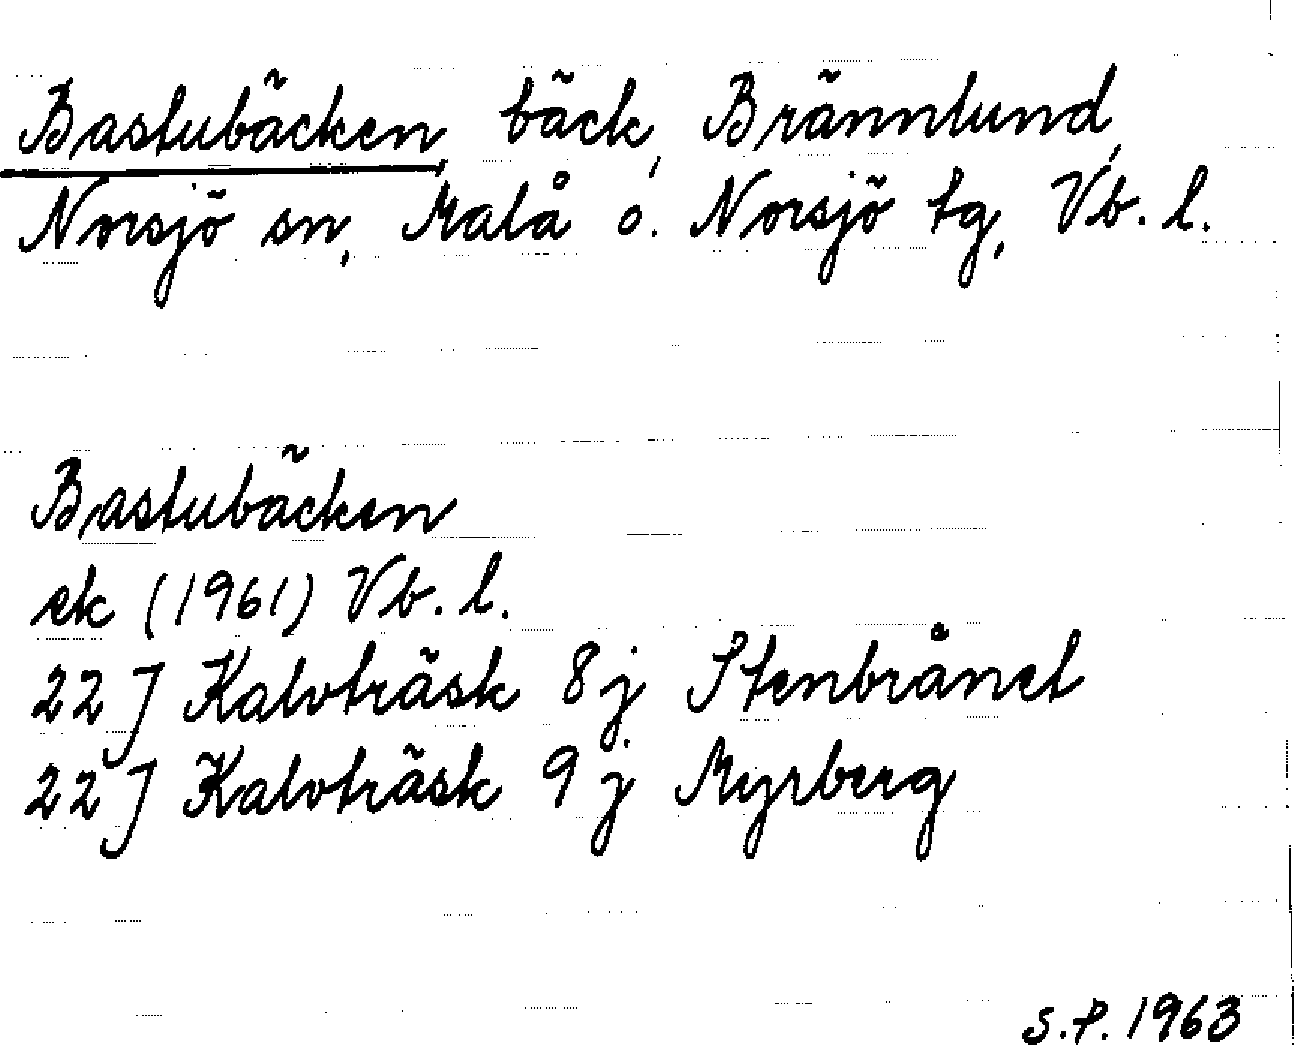 Bastubäcken, bäck, Brännlund,
Norsjö sn, Malå o. Norsjö tg, Vb. l.
Bastubäcken
ek (1961) Vb. l.
22 J Kalvträsk 8 j Stenbrånet
22 J Kalvträsk 9 j Myrberg
S.P. 1963